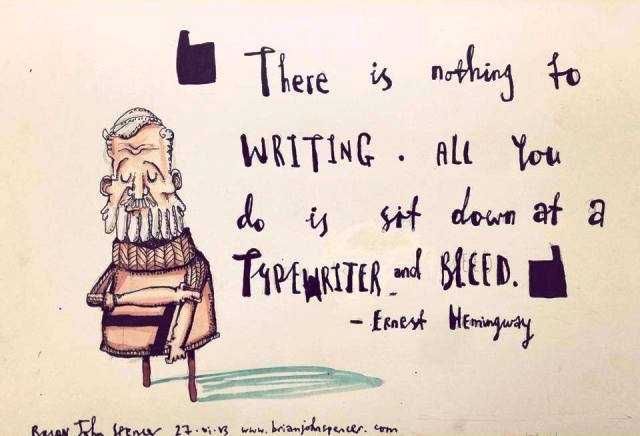 There is nothing to
WRITING. ALL You
do is sit down at a
TYPEWRITER and BLEED.
- ERNEST HEMingway
BRIAN JOHN SPENCER 27.vi.13 www.brianjohnspencer.com